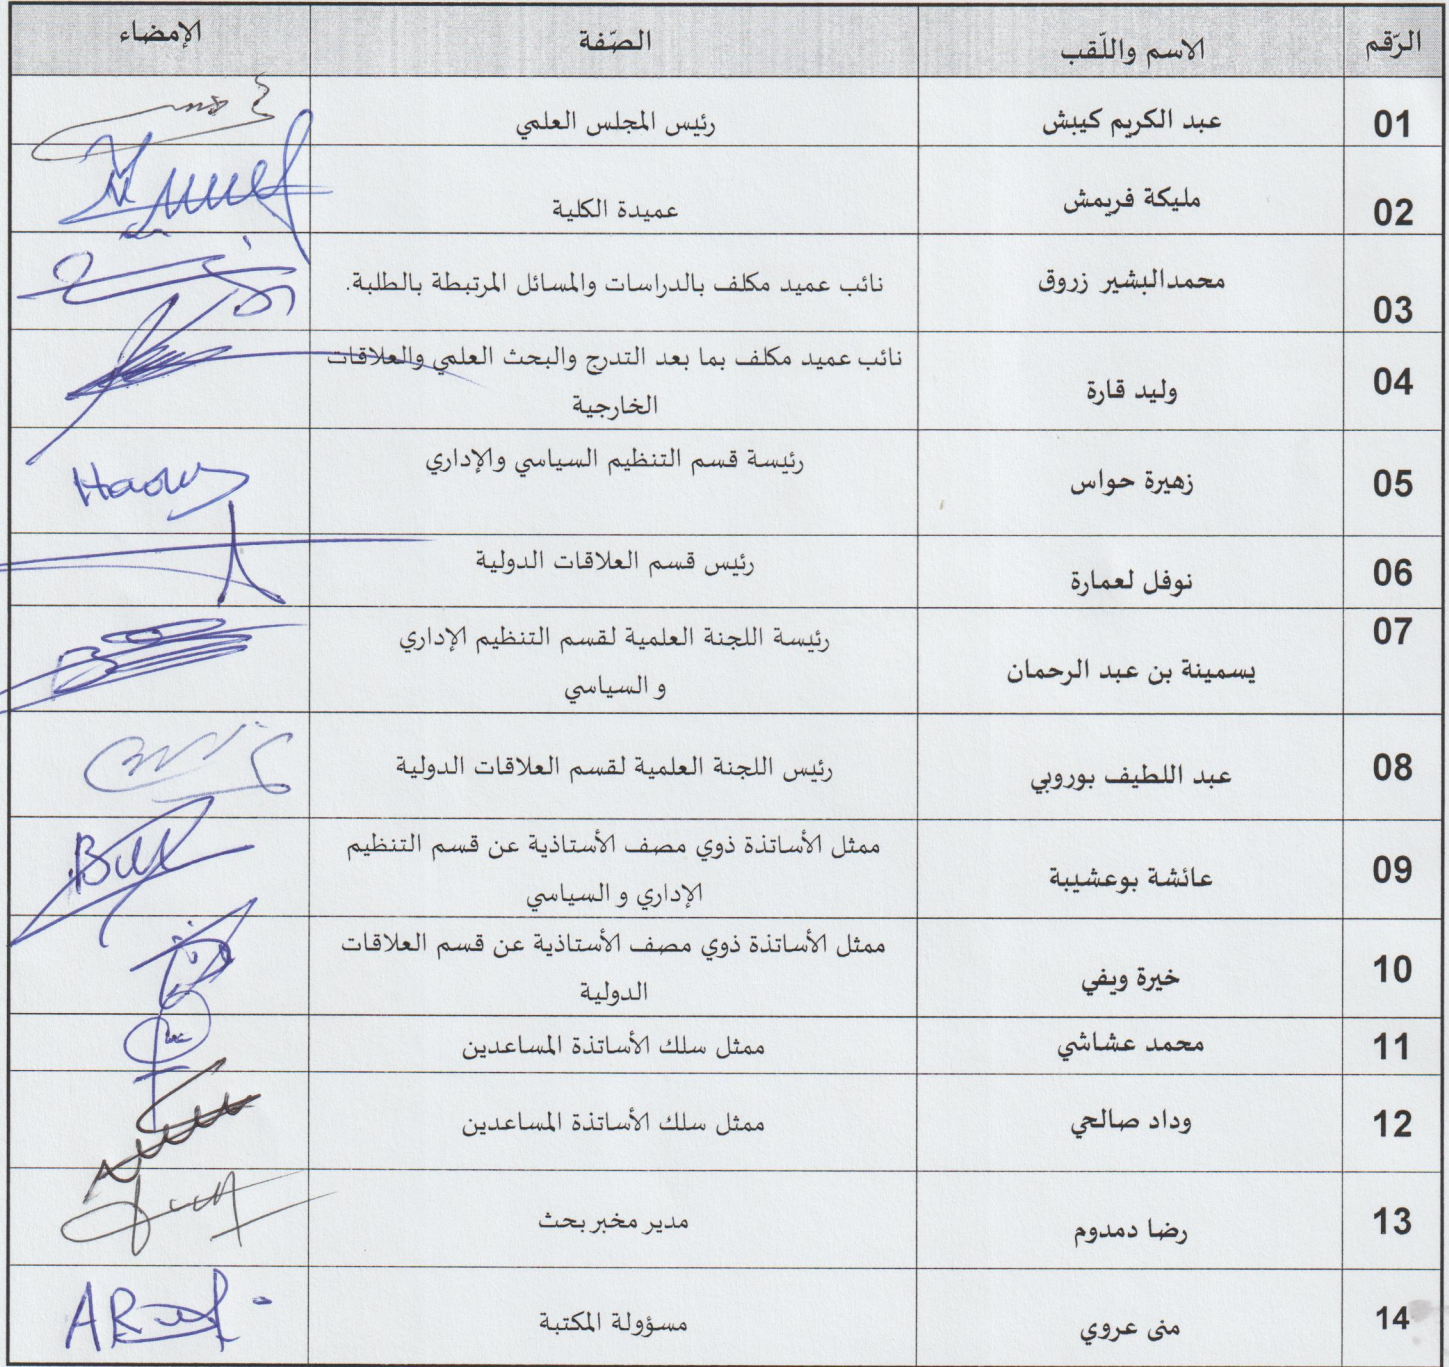 الرّقم الاسم واللّقب الصّفة الإمضاء
01 عبد الكريم كيبش رئيس المجلس العلمي
02 مليكة فريمش عميدة الكلية
03 محمدالبشير زروق نائب عميد مكلف بالدراسات والمسائل المرتبطة بالطلبة.
04 وليد قارة نائب عميد مكلف بما بعد التدرج والبحث العلمي والعلاقات
الخارجية
05 زهيرة حواس رئيسة قسم التنظيم السياسي والإداري
06 نوفل لعمارة رئيس قسم العلاقات الدولية
07 يسمينة بن عبد الرحمان رئيسة اللجنة العلمية لقسم التنظيم الإداري
و السياسي
08 عبد اللطيف بوروبي رئيس اللجنة العلمية لقسم العلاقات الدولية
09 عائشة بوعشيبة ممثل الأساتذة ذوي مصف الأستاذية عن قسم التنظيم
الإداري و السياسي
10 خيرة ويفي ممثل الأساتذة ذوي مصف الأستاذية عن قسم العلاقات
الدولية
11 محمد عشاشي ممثل سلك الأساتذة المساعدين
12 وداد صالحي ممثل سلك الأساتذة المساعدين
13 رضا دمدوم مدير مخبر بحث
14 منى عروي مسؤولة المكتبة